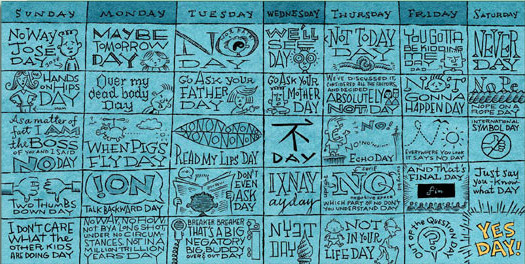 SUNDAY MONDAY TUESDAY WEDNESDAY THURSDAY FRIDAY SATURDAY
NO WAY
JOSÉ
DAY
MAYBE
TOMORROW
DAY
NO
DAY
WE'LL
SEE
DAY
NOT TODAY
DAY
YOU GOTTA
BE KIDDING
DAY
NEVER
DAY
HANDS
ON HIPS
DAY
Over my
dead body
Day
GO ASK YOUR
FATHER
DAY
GO ASK YOUR
MOTHER
DAY
WE'VE DISCUSSED IT,
AND DECIDED
ABSOLUTELY
NOT DAY
NOT
GONNA
HAPPEN DAY
NOPE
NOPE DAY
NOPE DAY
As a matter of
fact I AM
the BOSS
OF YOU AND I SAID
NO DAY
WHEN PIGS
FLY DAY
NONONONONO
READ MY LIPS DAY
不
DAY
NO!
ECHO DAY
NO
EVERYWHERE YOU LOOK
IT SAYS NO DAY
INTERNATIONAL
SYMBOL DAY
TWO THUMBS
DOWN DAY
!ON
TALK BACKWARD DAY
DON'T
EVEN
ASK
DAY
IXNAY
ayday
NO
negative space
WHICH PART OF NO DON'T
YOU UNDERSTAND DAY
AND THAT'S
FINAL DAY
fin
Just say
you-know-
what DAY
I DON'T CARE
WHAT THE
OTHER KIDS
ARE DOING DAY
NO WAY, NO HOW,
NOT BY A LONG SHOT,
UNDER NO CIRCUM-
STANCES, NOT IN A
MILLION TRILLION
YEARS DAY
BREAKER BREAKER
THAT'S A BIG
NEGATORY
BIG BUDDY
OVER & OUT DAY
NYET
DAY
NOT
IN YOUR
LIFE DAY
OUT OF THE QUESTION DAY
YES
DAY!